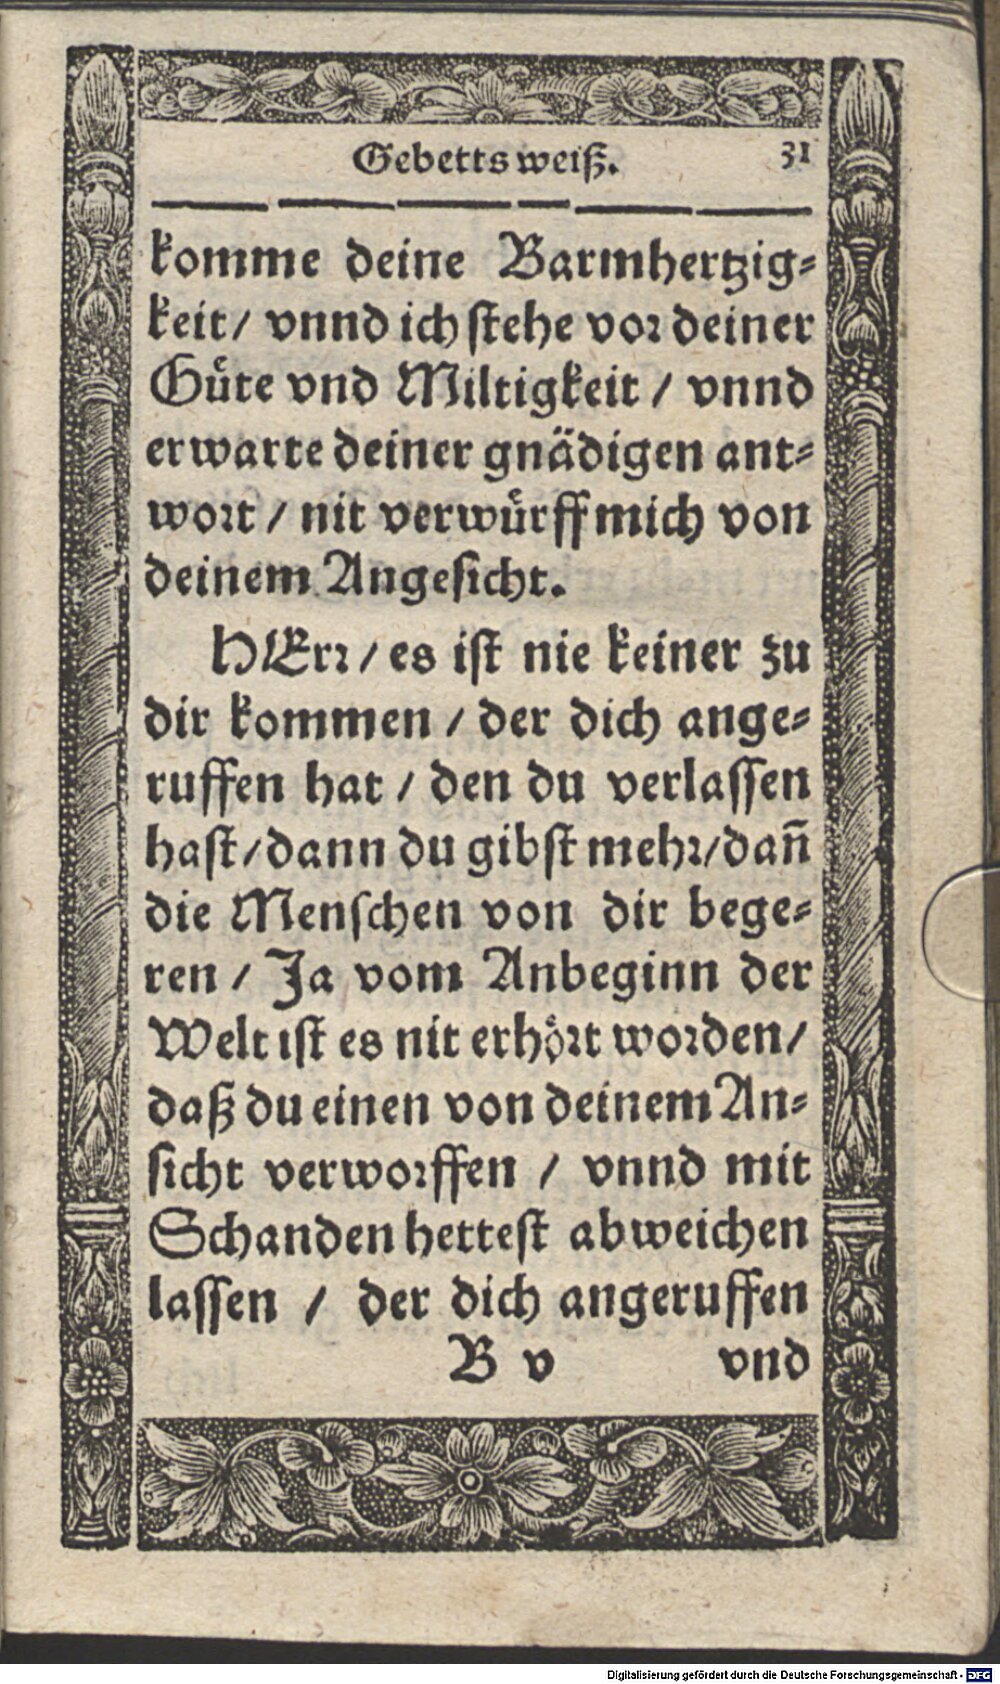 Gebetts weiß. 31
komme deine Barmhertzig⸗
keit/ vnnd ich stehe vor deiner
Guͤte vnd Miltigkeit / vnnd
erwarte deiner gnädigen ant⸗
wort / nit verwuͤrff mich von
deinem Angesicht.
HERr / es ist nie keiner zu
dir kommen / der dich ange⸗
ruffen hat / den du verlassen
hast/dann du gibst mehr/dañ
die Menschen von dir bege⸗
ren / Ja vom Anbeginn der
Welt ist es nit erhoͤrt worden/
daß du einen von deinem An⸗
sicht verworffen / vnnd mit
Schanden hettest abweichen
lassen / der dich angeruffen
B v vnd
Digitalisierung gefördert durch die Deutsche Forschungsgemeinschaft - DFG